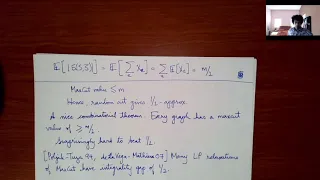 𝔼[|E(S,S̄)|] = 𝔼[∑ₑ Xₑ] = ∑ₑ 𝔼[Xₑ] = m/2
Maxcut value ≤ m
Hence, random cut gives 1/2-approx
A nice combinatorial theorem: Every graph has a maxcut
value of ≥ m/2
Surprisingly hard to beat 1/2
Many LP relaxations
of Maxcut have integrality gap of 1/2.